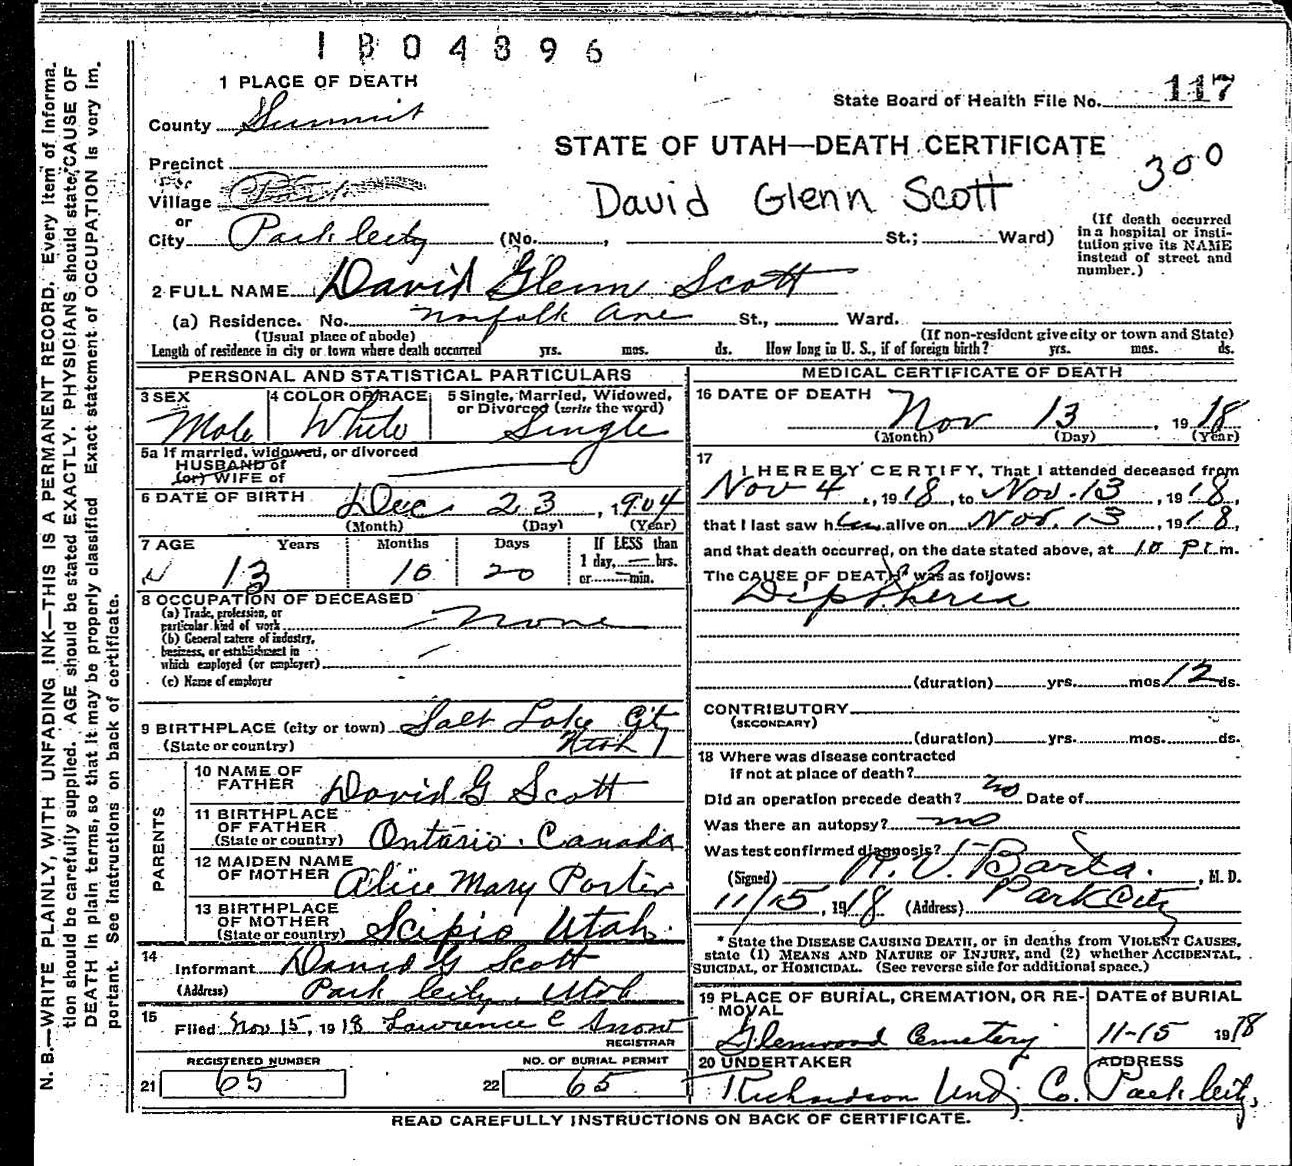 1804896
1 PLACE OF DEATH
State Board of Health File No. 117
County Summit
STATE OF UTAH—DEATH CERTIFICATE
300
Precinct
David Glenn Scott
Village Park
or
City Park City (No. , St.; Ward)
(If death occurred in a hospital or institution give its NAME instead of street and number.)
2 FULL NAME David Glenn Scott
(a) Residence. No. Norfolk Ave St., Ward.
(Usual place of abode) (If non-resident give city or town and State)
Length of residence in city or town where death occurred yrs. mos. ds. How long in U. S., if of foreign birth? yrs. mos. ds.
PERSONAL AND STATISTICAL PARTICULARS
3 SEX 4 COLOR OR RACE 5 Single, Married, Widowed, or Divorced (write the word)
Male White Single
5a If married, widowed, or divorced
HUSBAND of
(or) WIFE of
6 DATE OF BIRTH Dec 23, 1904
(Month) (Day) (Year)
7 AGE Years Months Days If LESS than
1 day, hrs.
13 10 20 or min.
8 OCCUPATION OF DECEASED
(a) Trade, profession, or
particular kind of work None
(b) General nature of industry,
business, or establishment in
which employed (or employer)
(c) Name of employer
9 BIRTHPLACE (city or town) Salt Lake City
(State or country) Utah
PARENTS
10 NAME OF
FATHER David G Scott
11 BIRTHPLACE
OF FATHER
(State or country) Ontario. Canada
12 MAIDEN NAME
OF MOTHER Alice Mary Porter
13 BIRTHPLACE
OF MOTHER
(State or country) Scipio Utah.
14
Informant David G Scott
(Address) Park City, Utah
15
Filed Nov 15, 1918 Lawrence C Snow
REGISTRAR
REGISTERED NUMBER NO. OF BURIAL PERMIT
21 65 22 65
MEDICAL CERTIFICATE OF DEATH
16 DATE OF DEATH
Nov 13, 1918
(Month) (Day) (Year)
17
I HEREBY CERTIFY, That I attended deceased from
Nov 4, 1918, to Nov. 13, 1918,
that I last saw him alive on Nov. 13, 1918,
and that death occurred, on the date stated above, at 10 P. m.
The CAUSE OF DEATH* was as follows:
Diptheria
(duration) yrs. mos. 12 ds.
CONTRIBUTORY
(SECONDARY)
(duration) yrs. mos. ds.
18 Where was disease contracted
if not at place of death?
Did an operation precede death? no Date of
Was there an autopsy? no
Was test confirmed diagnosis?
(Signed) , M. D.
11/15, 1918 (Address) Park City
* State the DISEASE CAUSING DEATH, or in deaths from VIOLENT CAUSES,
state (1) MEANS AND NATURE OF INJURY, and (2) whether ACCIDENTAL,
SUICIDAL, or HOMICIDAL. (See reverse side for additional space.)
19 PLACE OF BURIAL, CREMATION, OR RE- DATE of BURIAL
MOVAL
Glenwood Cemetery 11-15 1918
20 UNDERTAKER ADDRESS
Richardson Und. Co. Park City.
READ CAREFULLY INSTRUCTIONS ON BACK OF CERTIFICATE.
N. B.—WRITE PLAINLY, WITH UNFADING INK—THIS IS A PERMANENT RECORD. Every item of informa-
tion should be carefully supplied. AGE should be stated EXACTLY. PHYSICIANS should state CAUSE OF
DEATH in plain terms, so that it may be properly classified Exact statement of OCCUPATION is very im-
portant. See instructions on back of certificate.